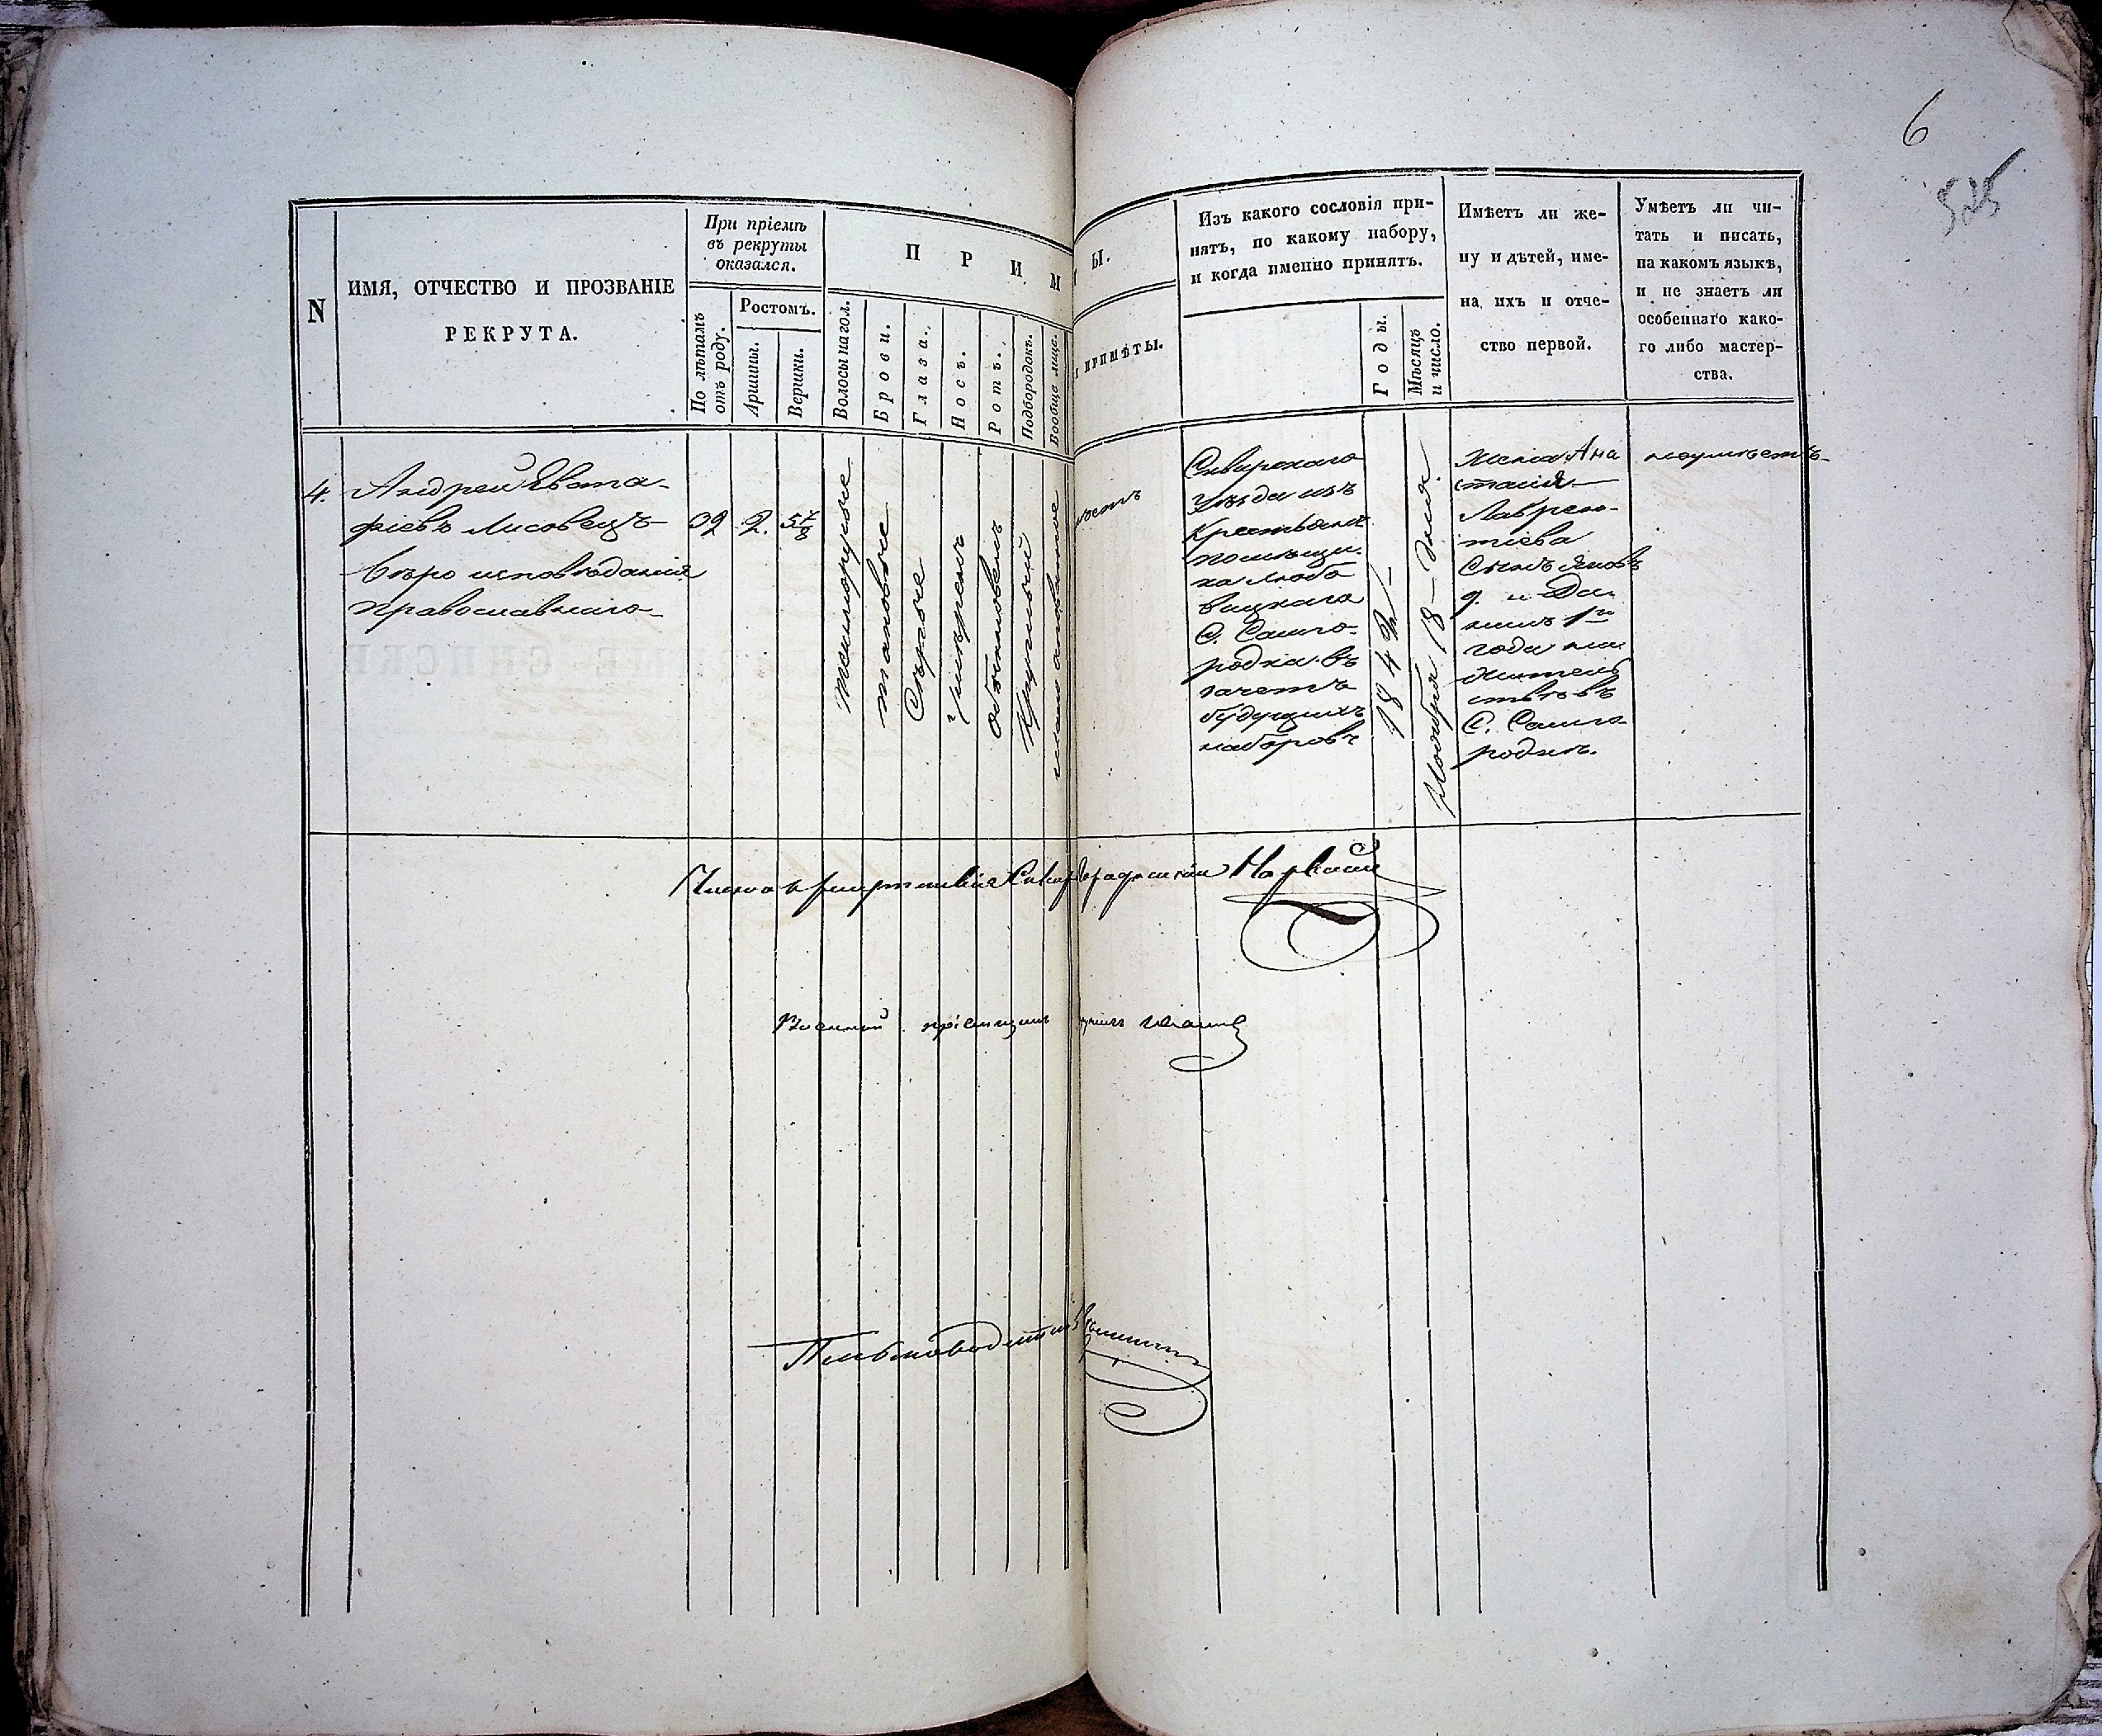 6
525
N
ИМЯ, ОТЧЕСТВО И ПРОЗВАНІЕ
РЕКРУТА.
При пріемѣ
въ рекруты
оказался.
По лѣтамъ
отъ роду.
Ростомъ.
Аршины.
Вершки.
П Р И М
Волосы на гол.
Брови.
Глаза.
Носъ.
Ротъ.
Подбородокъ.
Вообще лице.
Ы.
ПРИМѢТЫ.
Изъ какого сословія при-
нятъ, по какому набору,
и когда именно принятъ.
Годы.
Мѣсяцъ
и число.
Имѣетъ ли же-
ну и дѣтей, име-
на ихъ и отче-
ство первой.
Умѣетъ ли чи-
тать и писать,
на какомъ языкѣ,
и не знаетъ ли
особеннаго како-
го либо мастер-
ства.
4.
Андрей Евста-
фіевъ Лисовецъ
вѣро исповѣданія
православнаго
32
2.
5 7/8
темнорусые
таковые
Сѣрые
умѣренъ
обыкновенъ
Круглый
Сквирскаго
Уѣзда изъ
Крестьянъ
помѣщи-
ка
С. Самго-
родка въ
зачетъ
будущихъ
наборовъ
1842
Ноября 18 дня
Жена Ана
стасія
Лаврен-
тіева
Сынъ
года
житель
ствѣ въ
С. Самго-
родкѣ.
неумѣетъ
Военный пріемщикъ